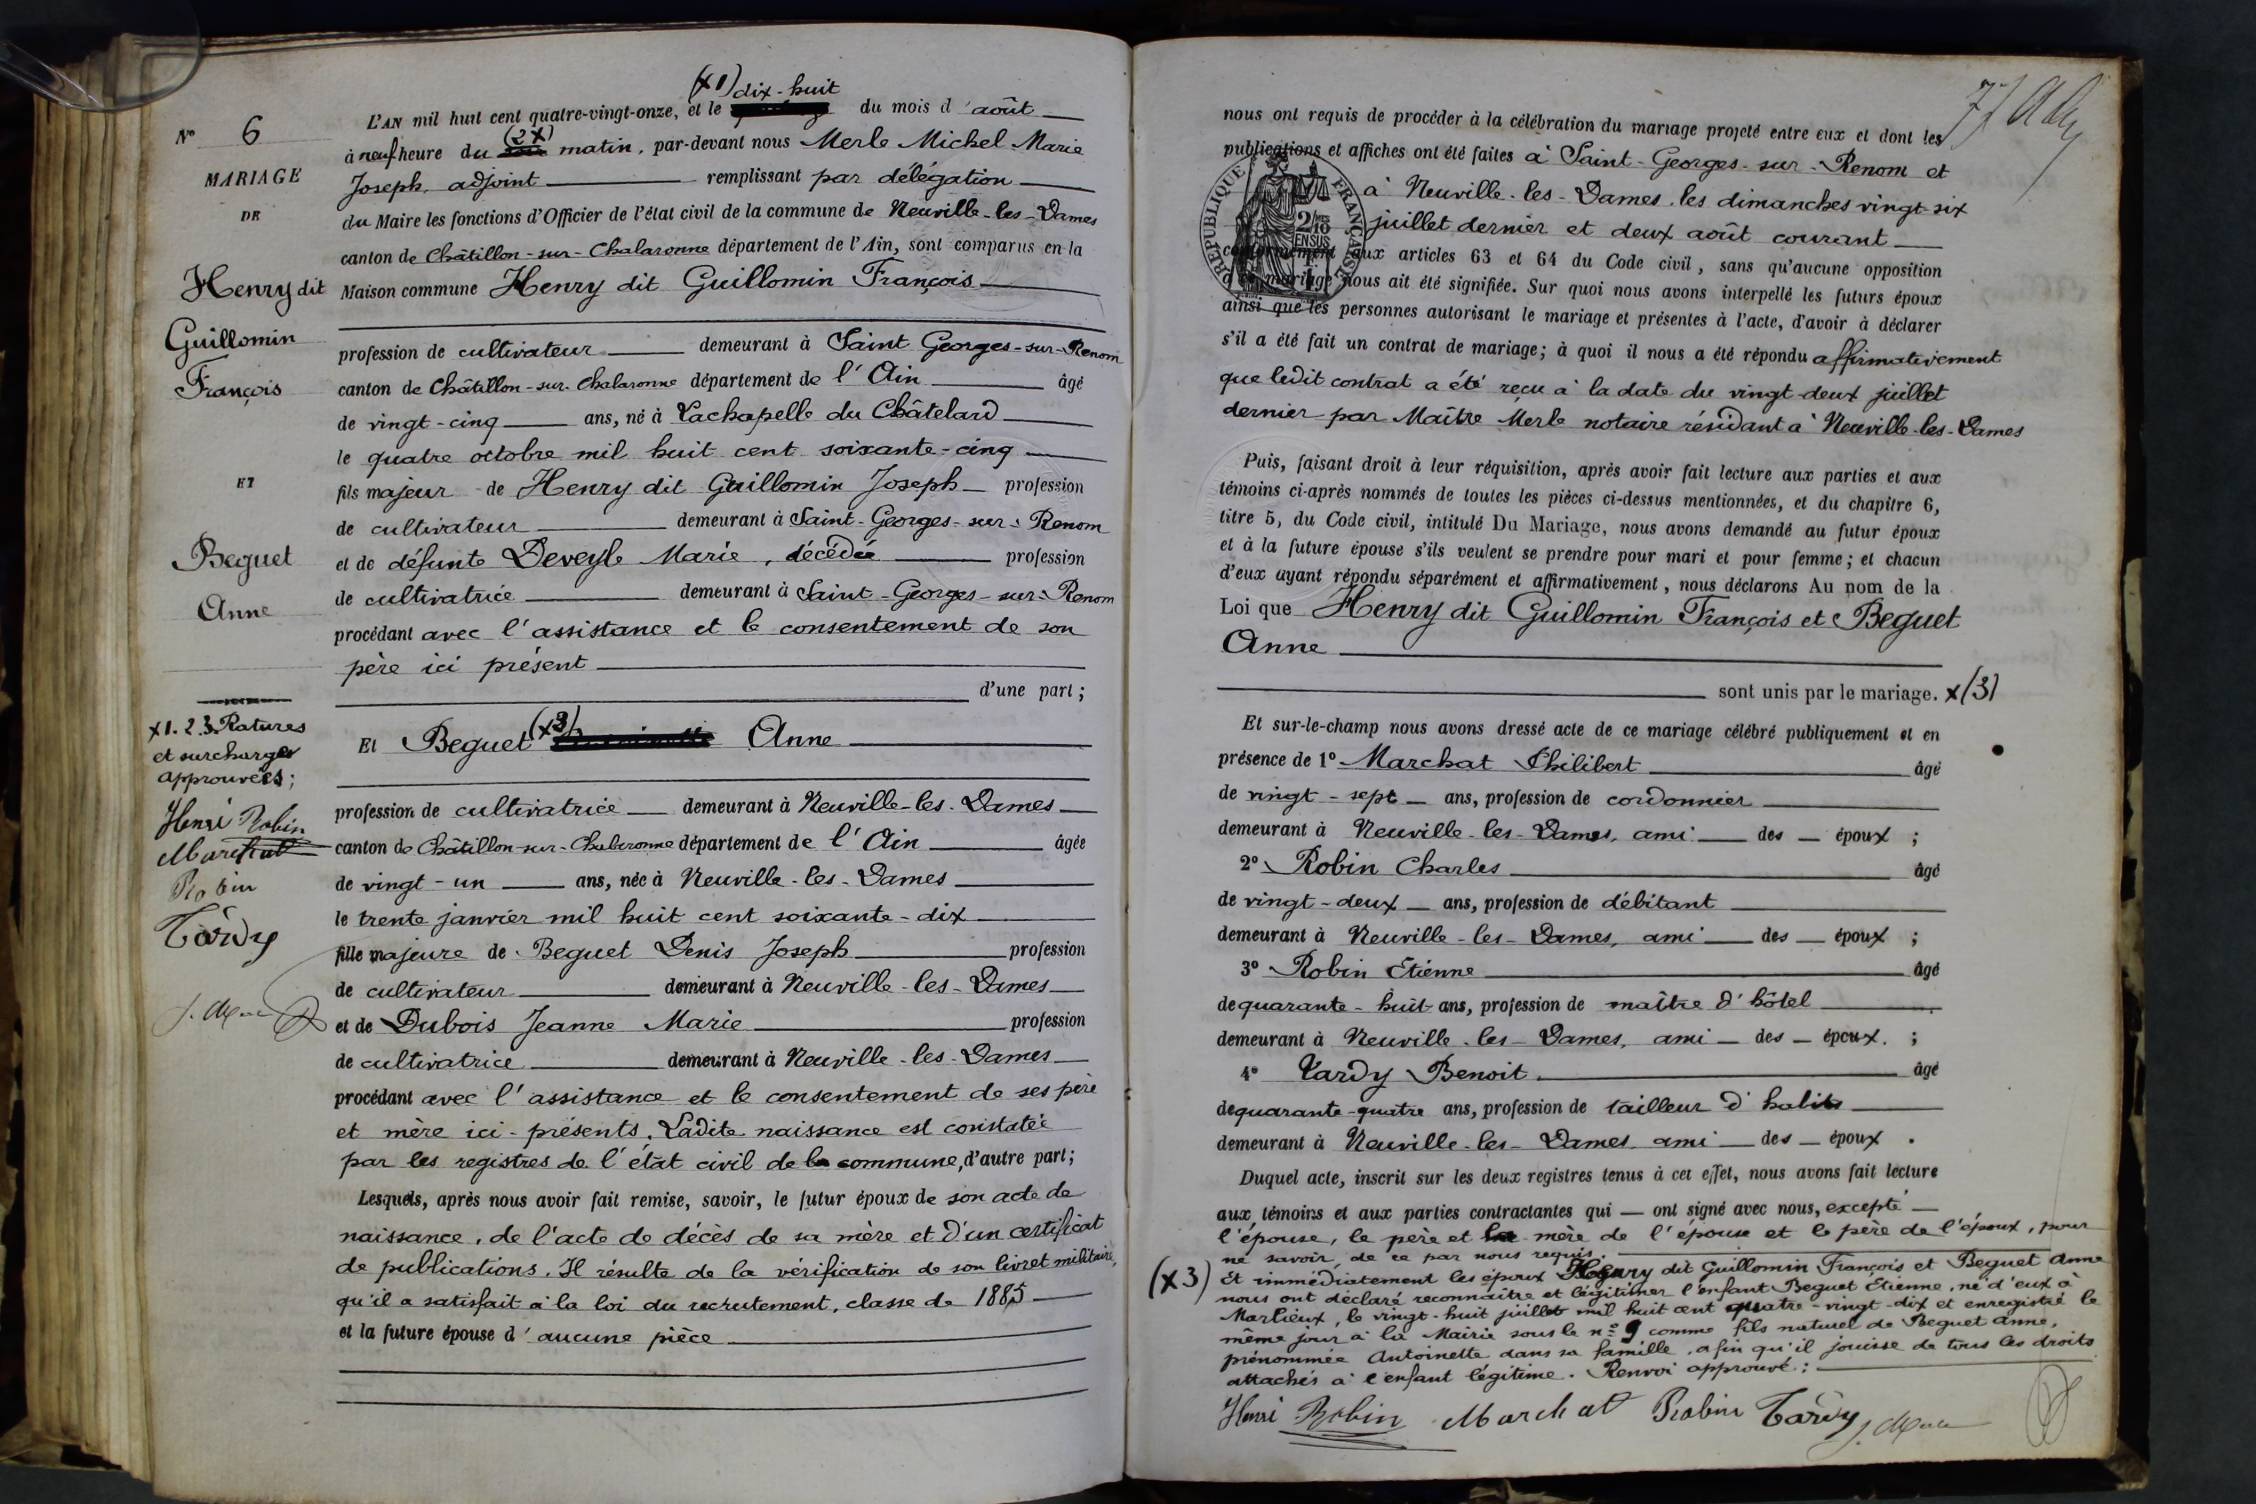 N° 6
MARIAGE
DE
Henry dit
Guillomin
François
ET
Beguet
Anne
x1.2.3. Ratures
et surcharges
approuvées;
Henri Robin
Marchat
Robin
Tardy
(x1) dix-huit
L'AN mil huit cent quatre-vingt-onze, et le du mois d'août
(2x)
à neuf heure du matin, par-devant nous Merle Michel Marie
Joseph, adjoint remplissant par délégation
du Maire les fonctions d'Officier de l'état civil de la commune de Neuville-les-Dames
canton de Châtillon-sur-Chalaronne département de l'Ain, sont comparus en la
Maison commune Henry dit Guillomin François
profession de cultivateur demeurant à Saint Georges-sur-Renom
canton de Châtillon-sur-Chalaronne département de l'Ain âgé
de vingt-cinq ans, né à Lachapelle du Châtelard
le quatre octobre mil huit cent soixante-cinq
fils majeur de Henry dit Guillomin Joseph profession
de cultivateur demeurant à Saint-Georges-sur-Renom
et de défunte Deveyle Marie, décédée profession
de cultivatrice demeurant à Saint-Georges-sur-Renom
procédant avec l'assistance et le consentement de son
père ici présent
d'une part;
Et Beguet (x3) Anne
profession de cultivatrice demeurant à Neuville-les-Dames
canton de Châtillon-sur-Chaleronne département de l'Ain âgée
de vingt-un ans, née à Neuville-les-Dames
le trente janvier mil huit cent soixante-dix
fille majeure de Beguet Denis Joseph profession
de cultivateur demeurant à Neuville-les-Dames
et de Dubois Jeanne Marie profession
de cultivatrice demeurant à Neuville-les-Dames
procédant avec l'assistance et le consentement de ses père
et mère ici-présents. Ladite naissance est constatée
par les registres de l'état civil de la commune, d'autre part;
Lesquels, après nous avoir fait remise, savoir, le futur époux de son acte de
naissance, de l'acte de décès de sa mère et d'un certificat
de publications. Il résulte de la vérification de son livret militaire,
qu'il a satisfait à la loi du recrutement, classe de 1885
et la future épouse d'aucune pièce
77
nous ont requis de procéder à la célébration du mariage projeté entre eux et dont les
publications et affiches ont été faites à Saint-Georges-sur-Renom et
à Neuville-les-Dames, les dimanches vingt-six
juillet dernier et deux août courant
conformément aux articles 63 et 64 du Code civil, sans qu'aucune opposition
à ce mariage nous ait été signifiée. Sur quoi nous avons interpellé les futurs époux
ainsi que les personnes autorisant le mariage et présentes à l'acte, d'avoir à déclarer
s'il a été fait un contrat de mariage; à quoi il nous a été répondu affirmativement
que ledit contrat a été reçu à la date du vingt-deux juillet
dernier par Maître Merle notaire résidant à Neuville-les-Dames
RÉPUBLIQUE FRANÇAISE
2/10
EN SUS
Puis, faisant droit à leur réquisition, après avoir fait lecture aux parties et aux
témoins ci-après nommés de toutes les pièces ci-dessus mentionnées, et du chapitre 6,
titre 5, du Code civil, intitulé Du Mariage, nous avons demandé au futur époux
et à la future épouse s'ils veulent se prendre pour mari et pour femme; et chacun
d'eux ayant répondu séparément et affirmativement, nous déclarons Au nom de la
Loi que Henry dit Guillomin François et Beguet
Anne
sont unis par le mariage. x(3)
Et sur-le-champ nous avons dressé acte de ce mariage célébré publiquement et en
présence de 1° Marchat Philibert âgé
de vingt-sept ans, profession de cordonnier
demeurant à Neuville-les-Dames, ami des époux;
2° Robin Charles âgé
de vingt-deux ans, profession de débitant
demeurant à Neuville-les-Dames, ami des époux;
3° Robin Etienne âgé
de quarante-huit ans, profession de maître d'hôtel
demeurant à Neuville-les-Dames, ami des époux.;
4° Tardy Benoit. âgé
de quarante-quatre ans, profession de tailleur d'habits
demeurant à Neuville-les-Dames ami des époux.
Duquel acte, inscrit sur les deux registres tenus à cet effet, nous avons fait lecture
aux témoins et aux parties contractantes qui ont signé avec nous, excepté
l'épouse, le père et la mère de l'épouse et le père de l'époux, pour
ne savoir, de ce par nous requis.
(x3) Et immédiatement les époux Henry dit Guillomin François et Beguet Anne
nous ont déclaré reconnaître et légitimer l'enfant Beguet Etienne, né d'eux à
Marlieux, le vingt-huit juillet mil huit cent quatre-vingt-dix et enregistré le
même jour à la Mairie sous le n° 9 comme fils naturel de Beguet Anne,
prénommée Antoinette dans sa famille, afin qu'il jouisse de tous les droits
attachés à l'enfant légitime. Renvoi approuvé.:
Henri Robin Marchat Robin Tardy